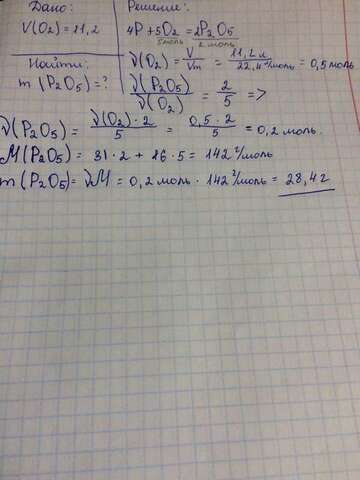 Дано:
V(O₂) = 11,2
Найти:
m(P₂O₅) = ?
Решение:
4P + 5O₂ = 2P₂O₅
5моль 2 моль
ν(O₂) = V/Vm = 11,2 л/22,4 л/моль = 0,5 моль
ν(P₂O₅)/ν(O₂) = 2/5 =>
ν(P₂O₅) = ν(O₂)·2/5 = 0,5·2/5 = 0,2 моль.
M(P₂O₅) = 31·2 + 16·5 = 142 г/моль
m(P₂O₅) = νM = 0,2 моль · 142 г/моль = 28,4 г